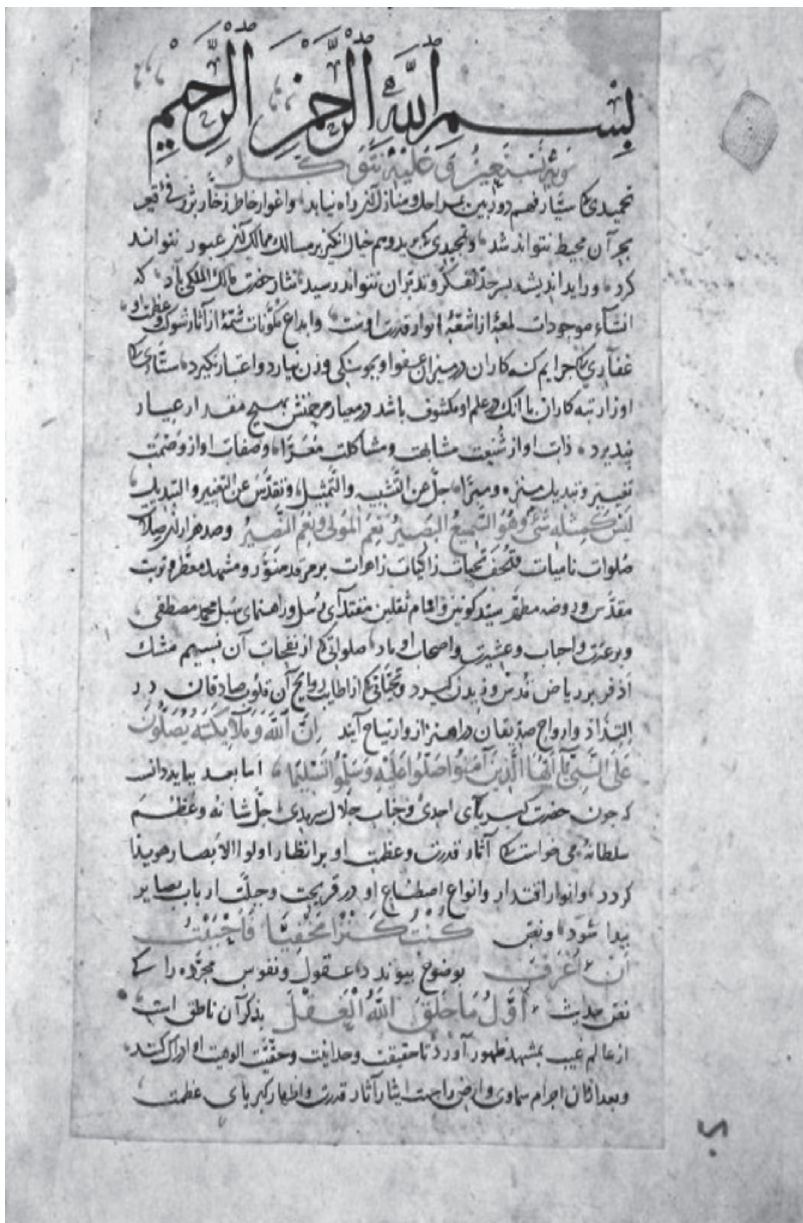 بسم الله الرحمن الرحيم
وبه نستعين و عليه نتوكل
تحیدی کا ستار فهم دوربین بمراحل و منازل آن راه نیابد و اغوار خاطر ذخار ژرفی قعر
بحر آن محیط نتواند شد و تمجیدی که برید وهم خیال انکیز بر مسالک ممالک آن عبور نتواند
کرد و راید اندیشه بسرحد تفکر و تدبر آن نتواند رسید نثار حضرت مالک الملکی باد که
انشآء موجودات لمعهٔ از اشعّهٔ انوار قدرت اوست و ابداع مکوّنات شمّهٔ از آثار شوکت و عظمت او
غفاری که جرایم کنه کاران در میزان عفو او بجو سنکی وزن نیارد و اعتبار نکیرد ستاری کا
اوزار تبه کاران با آنک در علم او مکشوف باشد در معیار مرحمتش بهیچ مقدار عیار
نپذیرد ذات او از شبهت مشابهت و مشاکلت معرّا و صفات او از وصمت
تغییر و تبدیل منزه و مبرّا جلّ عن التشبیه والتمثیل و تقدّس عن التغییر والتبدیل
لیس کمثله شیٔ وهو السمیع البصیر نعم المولی و نعم النصیر و صد هزاران صلات
صلوات نامیات و تحف تحیات زاکیات زاهرات بر مرقد منوّر و مشهد معطّر و تربت
مقدّس و روضه مطهّر سیّد کونین و امام ثقلین مقتدآی رسل و راهنمای سبل محمد مصطفی
و بر عترت و احباب و عشیرت و اصحاب او باد صلواتی که از نفحات آن نسیم مشک
اذفر بر ریاض قدس وزیدن کیرد و تحیّاتی که از اطایب روایح آن قلوب صادقان در
التذاذ و ارواح صدّیقان در اهتزاز و ارتیاح آیند ان الله و ملآئکته یصلّون
علی النبی یآ ایها الذین آمنوا صلوا علیه و سلموا تسلیما اما بعد بباید دانست
که چون حضرت کبریآی احدی و جناب جلال سرمدی جلّ شانه و عظم
سلطانه می خواست که آثار قدرت و عظمت او بر انظار اولوا الابصار هویدا
کردد و انوار اقتدار و انواع اصطناع او در قریحت و جبلّت ارباب بصایر
پیدا شود و نص کنت کنزا مخفیا فاحببت
ان اعرف بوضوح پیوندد عقول و نفوس مجرّده را که
نص حدیث اوّل ما خلق الله العقل بذکر آن ناطق است
از عالم غیب بمشهد ظهور آورد تا حقیقت وحدانیت و حقیّت الوهیت او ادراک کنند
و بعد از آن اجرام سماوی و ارضی را جهت ایثار آثار قدرت و اظهار کبریای عظمت